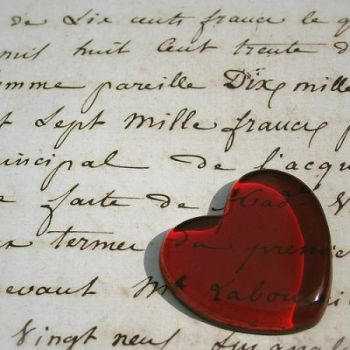 de Six cents francs le
mil huit cent trente
pareille Dix mille
Sept mille francs
de l'acqu
faite de
termes du premier
devant Me
Vingt neuf